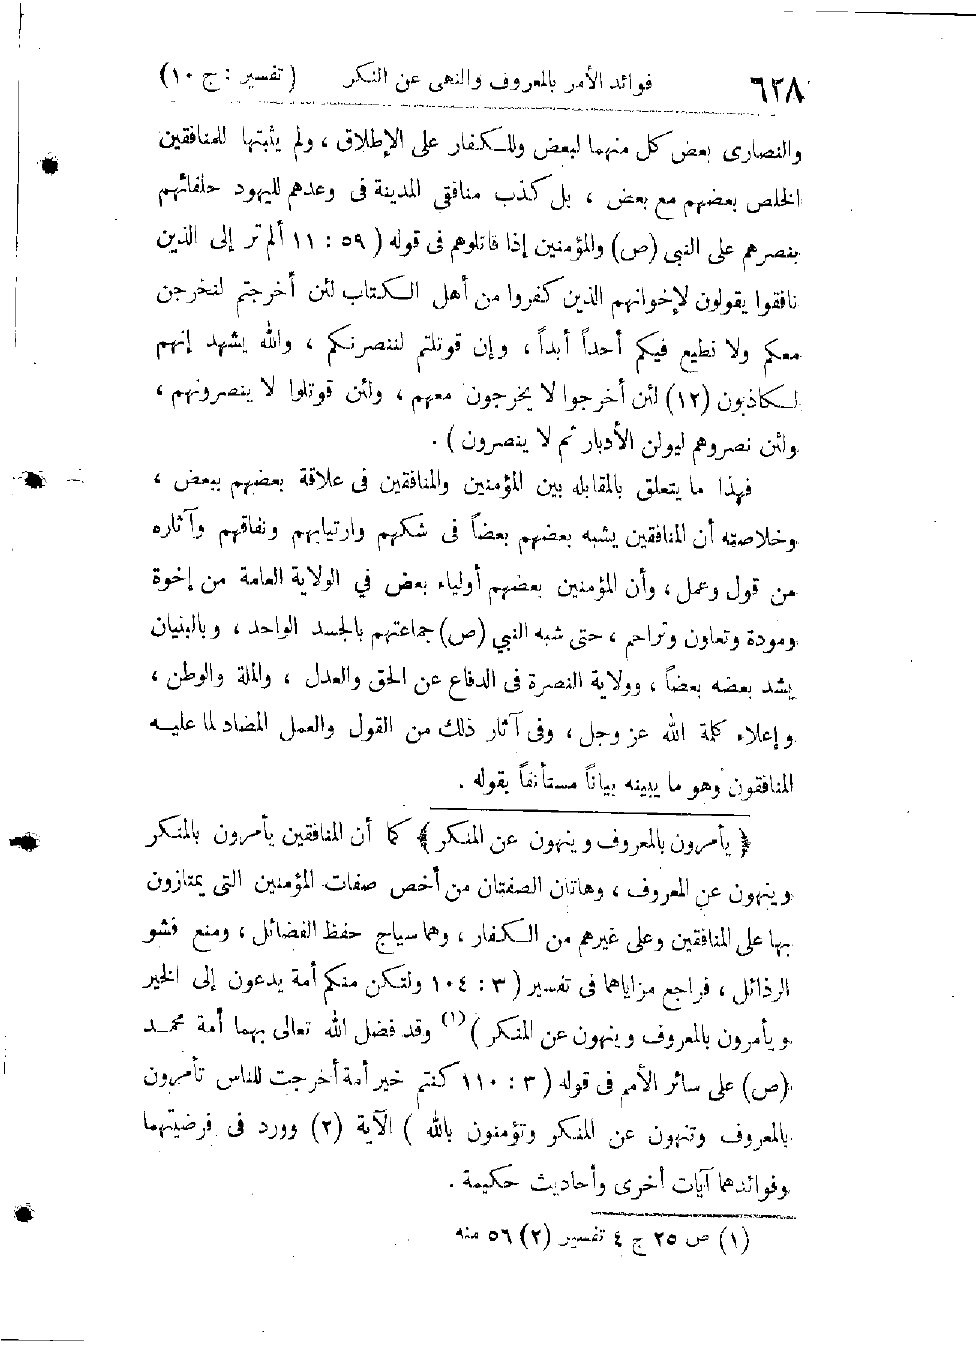 ٦٢٨ فوائد الأمر بالمعروف والنهى عن المنكر ( تفسير : ج ١٠ )
والنصارى بعض كل منهما لبعض وللكفار على الإطلاق ، ولم يثبتها للمنافقين
الخلص بعضهم مع بعض ، بل كذب منافقى المدينة فى وعدهم لليهود حلفائهم
بنصرهم على النبى (ص) والمؤمنين إذا قاتلوهم فى قوله ( ٥٩ : ١١ ألم تر إلى الذين
نافقوا يقولون لإخوانهم الذين كفروا من أهل الكتاب لئن أخرجتم لنخرجن
معكم ولا نطيع فيكم أحداً أبداً ، وإن قوتلتم لننصرنكم ، والله يشهد إنهم
لكاذبون (١٢) لئن أخرجوا لا يخرجون معهم ، ولئن قوتلوا لا ينصرونهم ،
ولئن نصروهم ليولن الأدبار ثم لا ينصرون ) .
فهذا ما يتعلق بالمقابله بين المؤمنين والمنافقين فى علاقة بعضهم ببعض ،
وخلاصته أن المنافقين يشبه بعضهم بعضاً فى شكهم وارتيابهم ونفاقهم وآثاره
من قول وعمل ، وأن المؤمنين بعضهم أولياء بعض في الولاية العامة من إخوة
ومودة وتعاون وتراحم ، حتى شبه النبي (ص) جماعتهم بالجسد الواحد ، وبالبنيان
يشد بعضه بعضاً ، وولاية النصرة فى الدفاع عن الحق والعدل ، والملة والوطن ،
وإعلاء كلمة الله عز وجل ، وفى آثار ذلك من القول والعمل المضاد لما عليه
المنافقون وهو ما يبينه بياناً مستأنفاً بقوله .
﴿ يأمرون بالمعروف وينهون عن المنكر ﴾ كما أن المنافقين يأمرون بالمنكر
وينهون عن المعروف ، وهاتان الصفتان من أخص صفات المؤمنين التى يمتازون
بها على المنافقين وعلى غيرهم من الكفار ، وهما سياج حفظ الفضائل ، ومنع فشو
الرذائل ، فراجع مزاياهما فى تفسير ( ٣ : ١٠٤ ولتكن منكم أمة يدعون إلى الخير
ويأمرون بالمعروف وينهون عن المنكر ) (١) وقد فضل الله تعالى بهما أمة محمد
(ص) على سائر الأمم فى قوله ( ٣ : ١١٠ كنتم خير أمة أخرجت للناس تأمرون
بالمعروف وتنهون عن المنكر وتؤمنون بالله ) الآية (٢) وورد فى فرضيتهما
وفوائدهما آيات أخرى وأحاديث حكيمة .
(١) ص ٢٥ ج ٤ تفسير (٢) ٥٦ منه